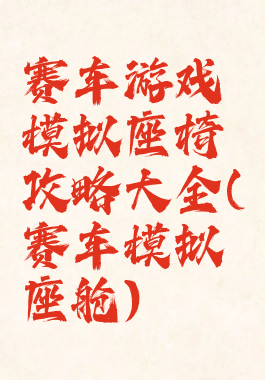 赛车游戏
模拟座椅
攻略大全(
赛车模拟
座舱)